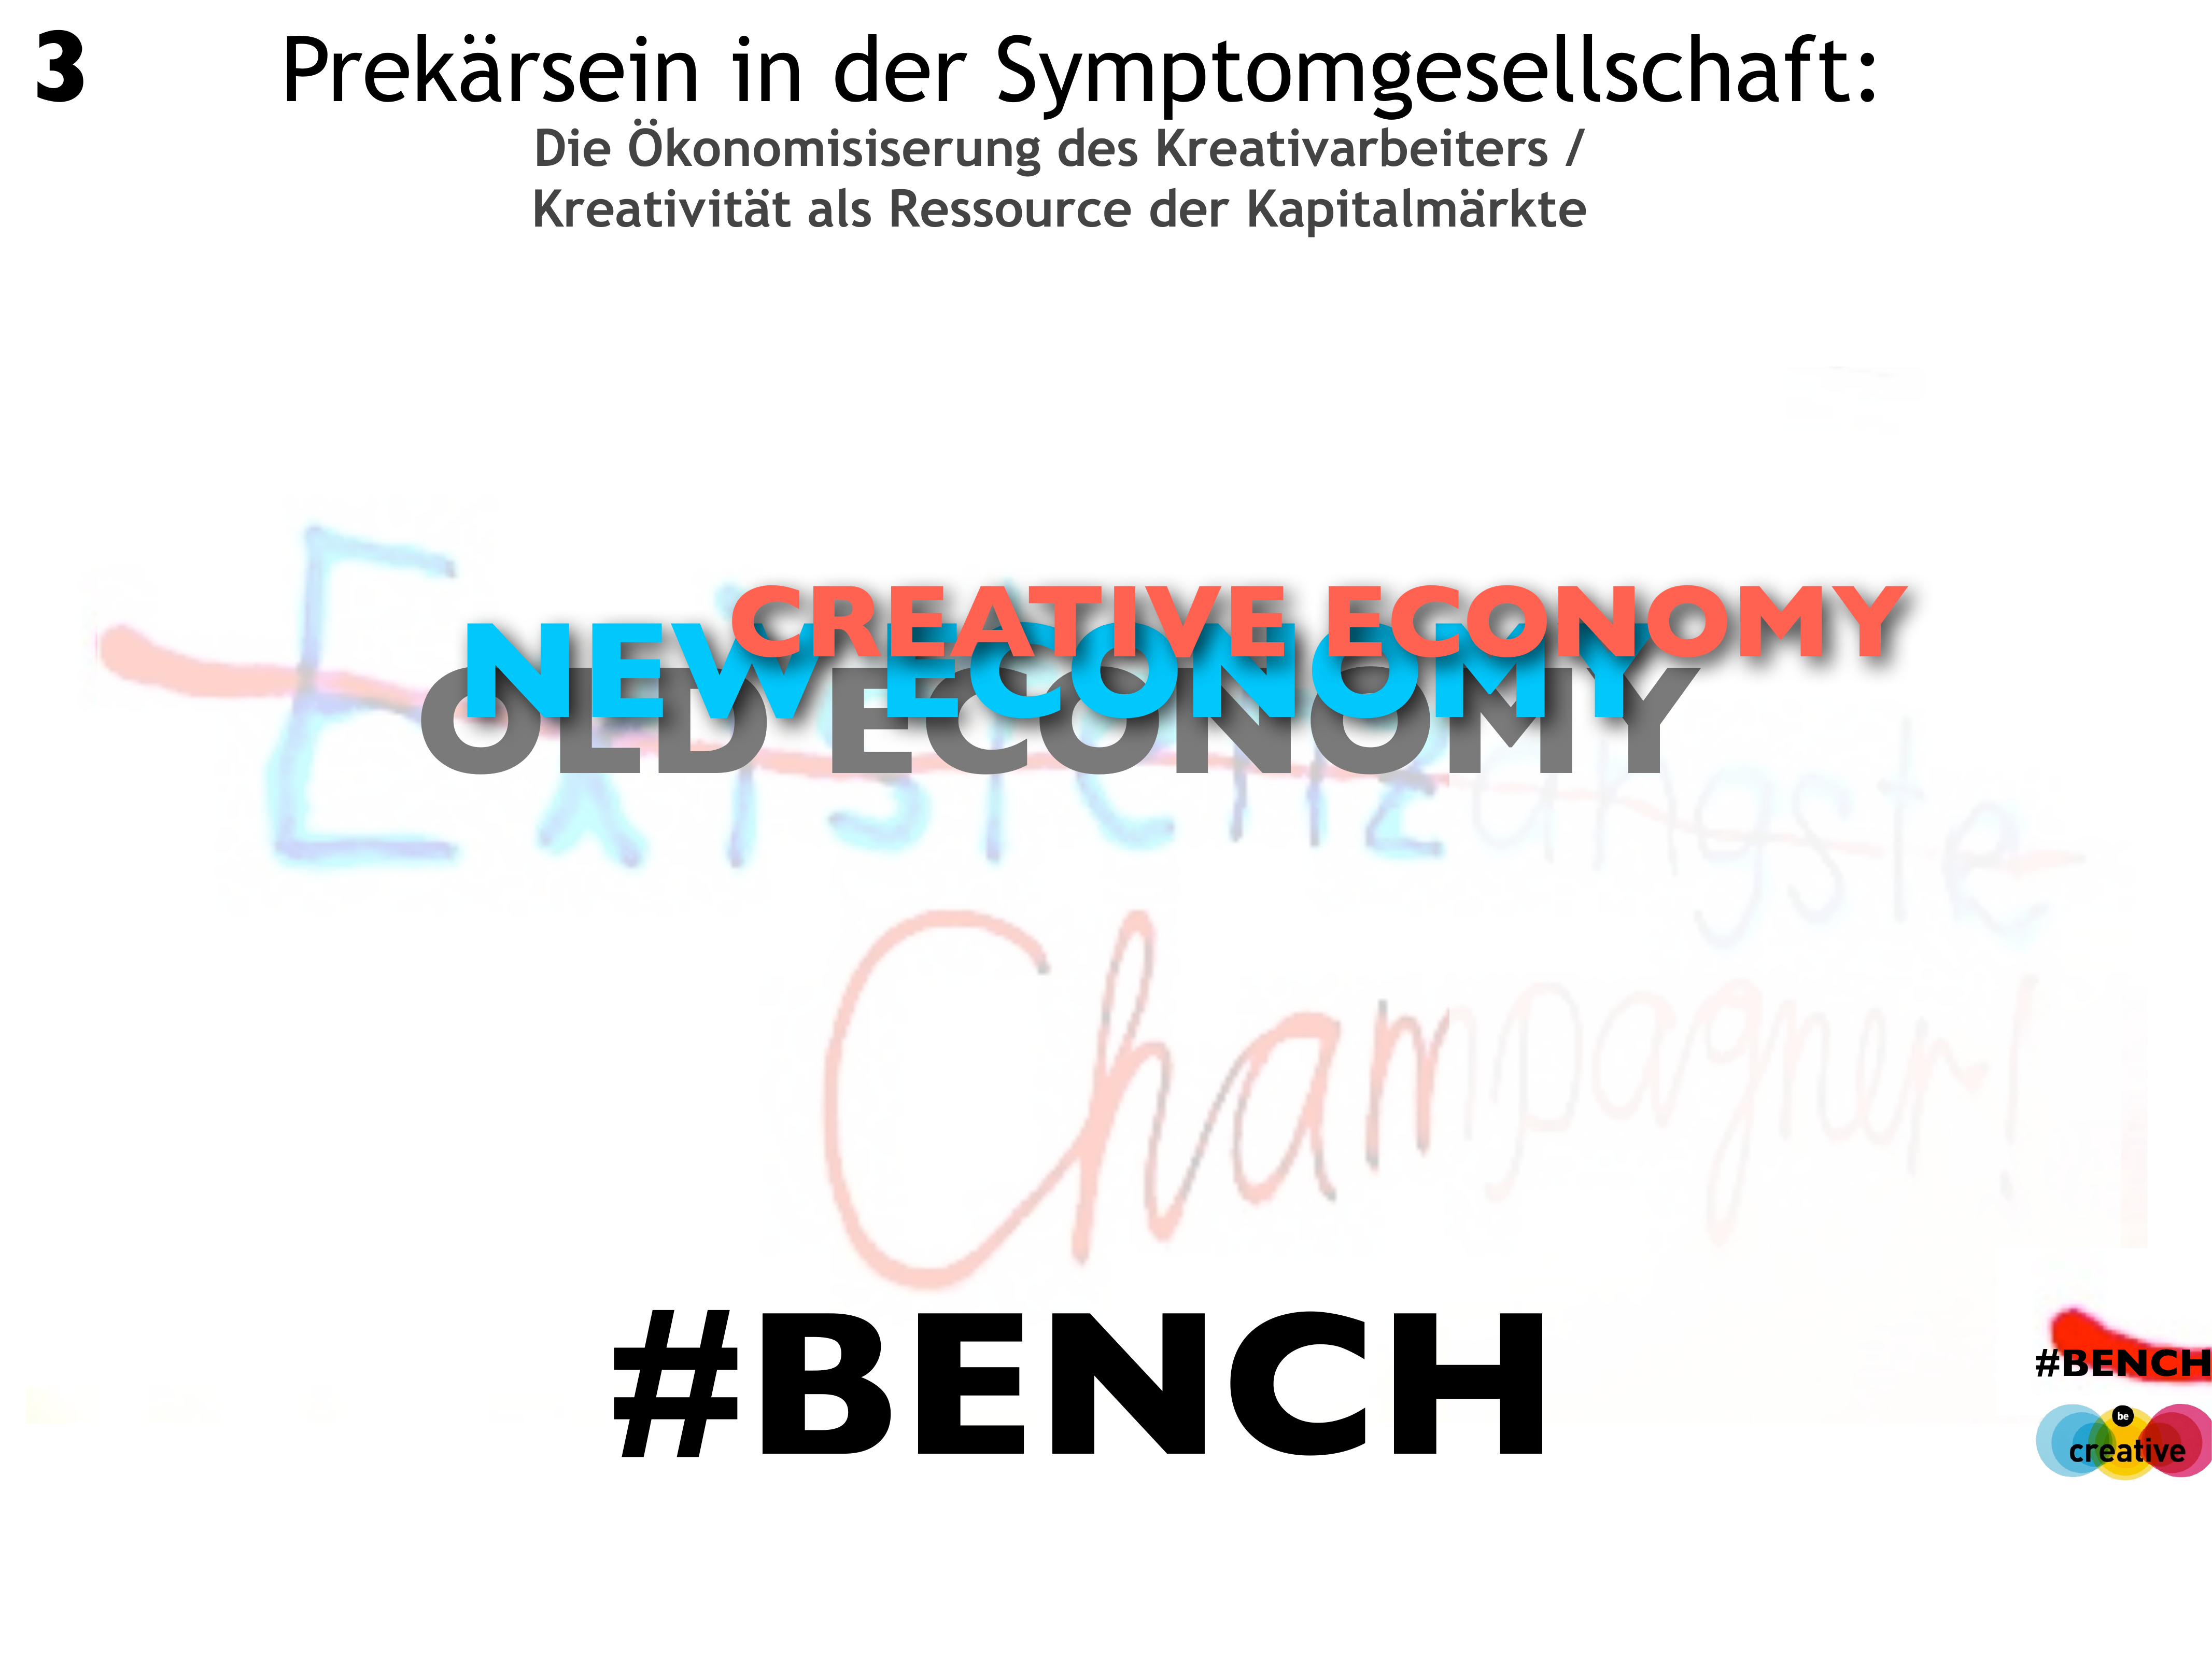 3
Prekärsein in der Symptomgesellschaft:
Die Ökonomisiserung des Kreativarbeiters /
Kreativität als Ressource der Kapitalmärkte
CREATIVE ECONOMY
NEW ECONOMY
OLD ECONOMY
Existenzängste
Champagner!
#BENCH
#BENCH
be
creative